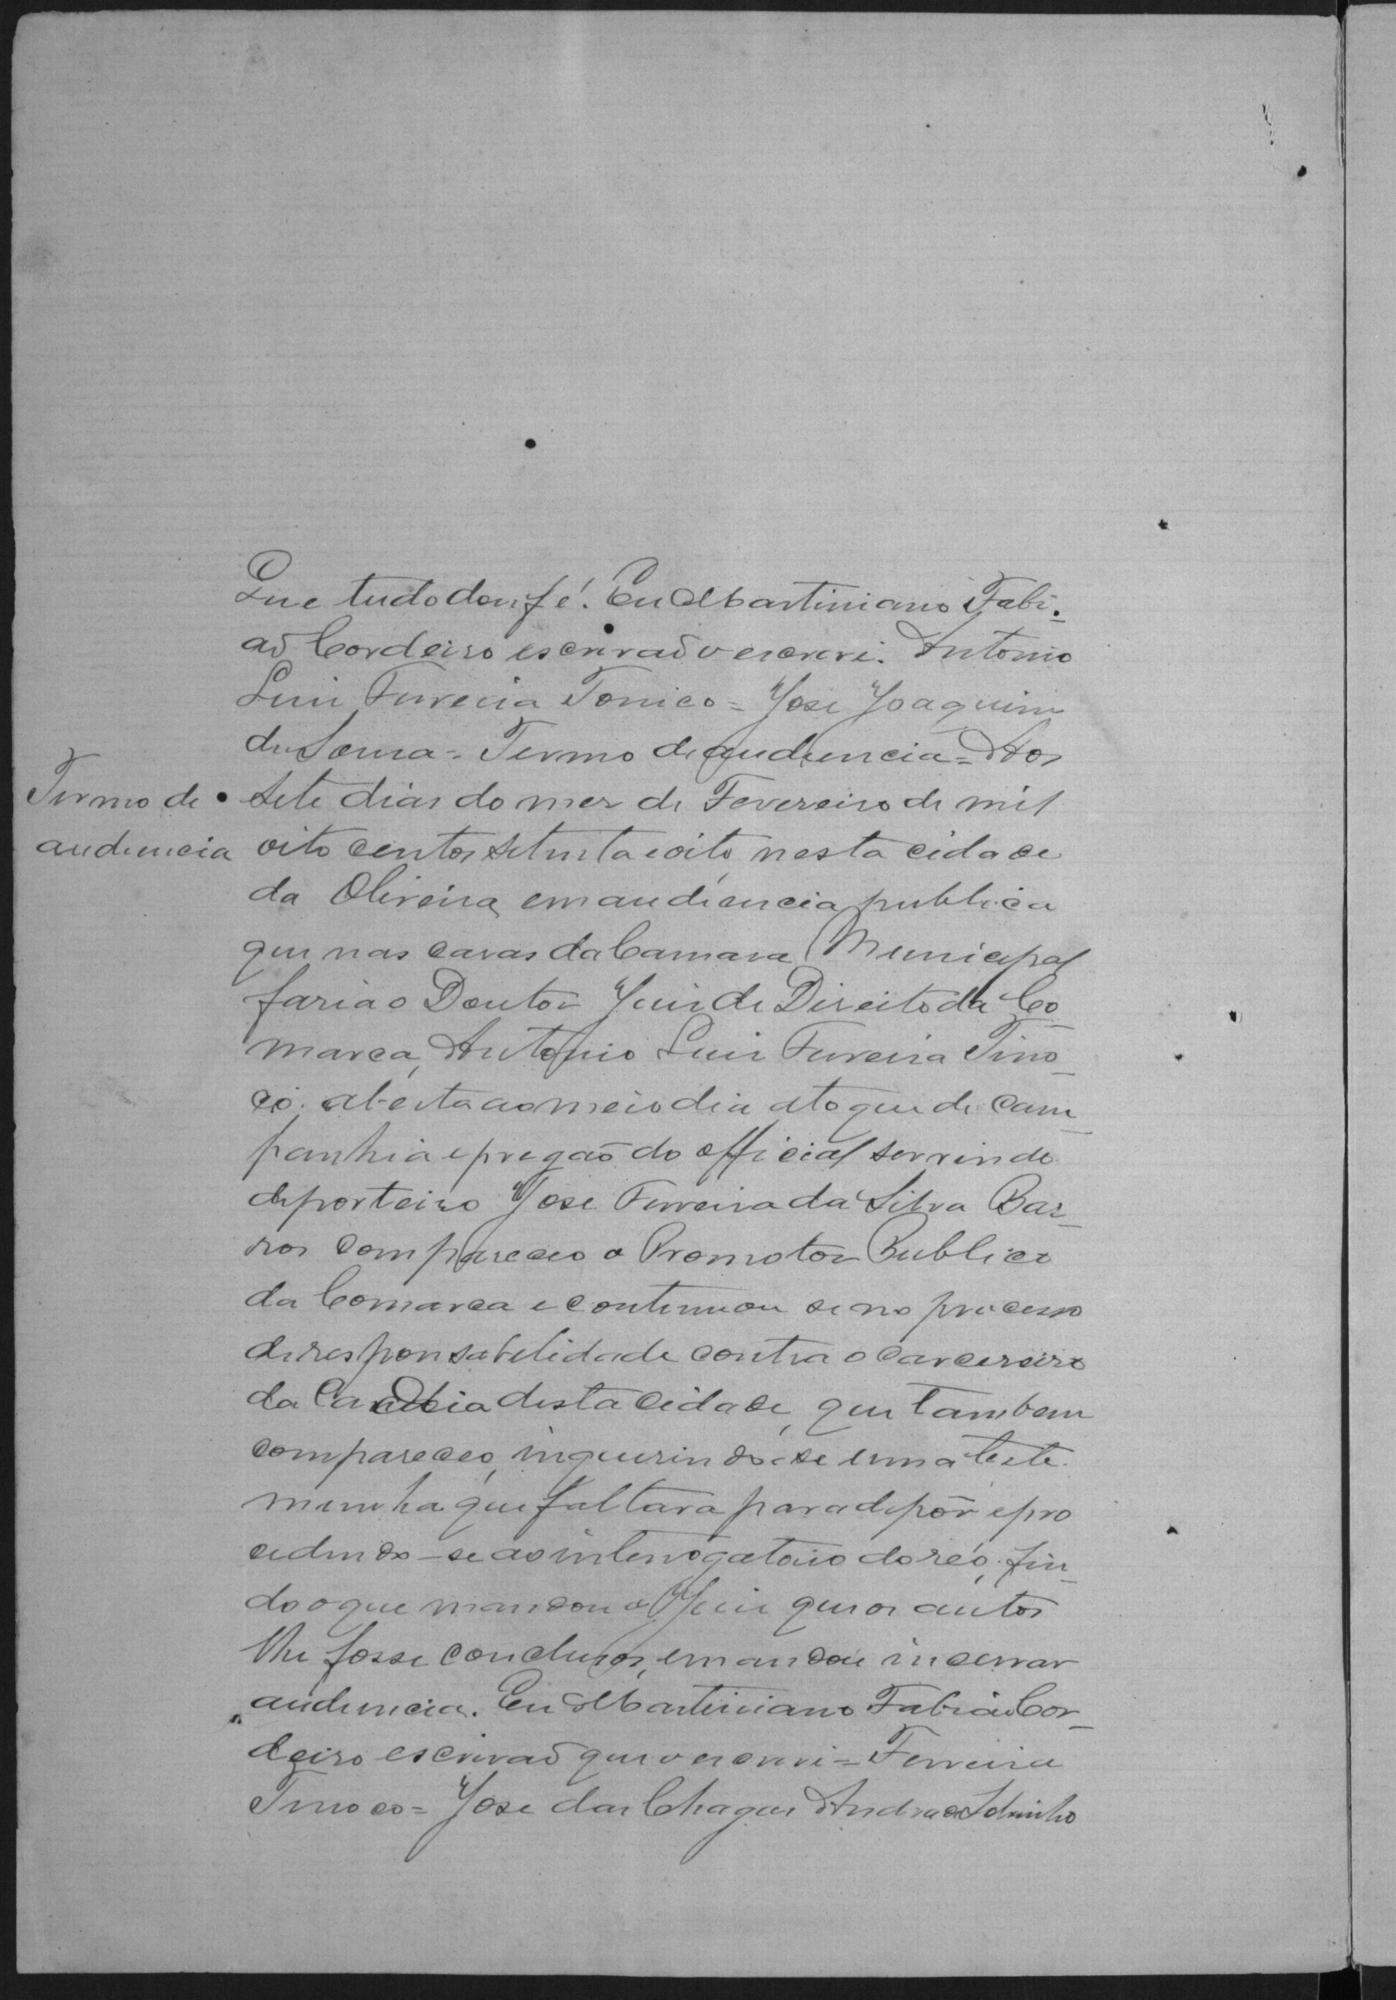 Que tudo dou fé. Eu Martiniano Fabi-
ão Cordeiro escrivaõ o escrevi. Antonio
Luiz Ferreira Tonico = Jose Joaquim
de Souza = Termo de audiencia = Aos
Termo de
audiencia
sete dias do mez de Fevereiro de mil
oito centos setenta e oito, nesta cidade
da Oliveira, em audiencia publica
que nas casas da Camara Municipal
faria o Doutor Juiz de Direito da Co-
marca, Antonio Luiz Ferreira Tino-
co, aberta ao meio dia a toque de cam-
panhia e pregaõ do official servindo
de porteiro Jose Ferreira da Silva Bar-
ros compareceo o Promotor Publico
da Comarca e continuou se no processo
de responsabelidade contra o carcereiro
da Cadeia desta cidade, que tambem
compareceo, inquerindo-se uma teste-
munha que faltava para depôr e pro
cedendo-se ao interrogatorio do reo, fin-
do o que mandou o Juiz que os autos
lhe fosse conclusos, e mandou incerrar
audiencia. Eu Martiniano Fabiaõ Cor-
deiro escrivaõ que o escrevi = Ferreira
Tinoco = Jose das Chagas Andrade Sobrinho